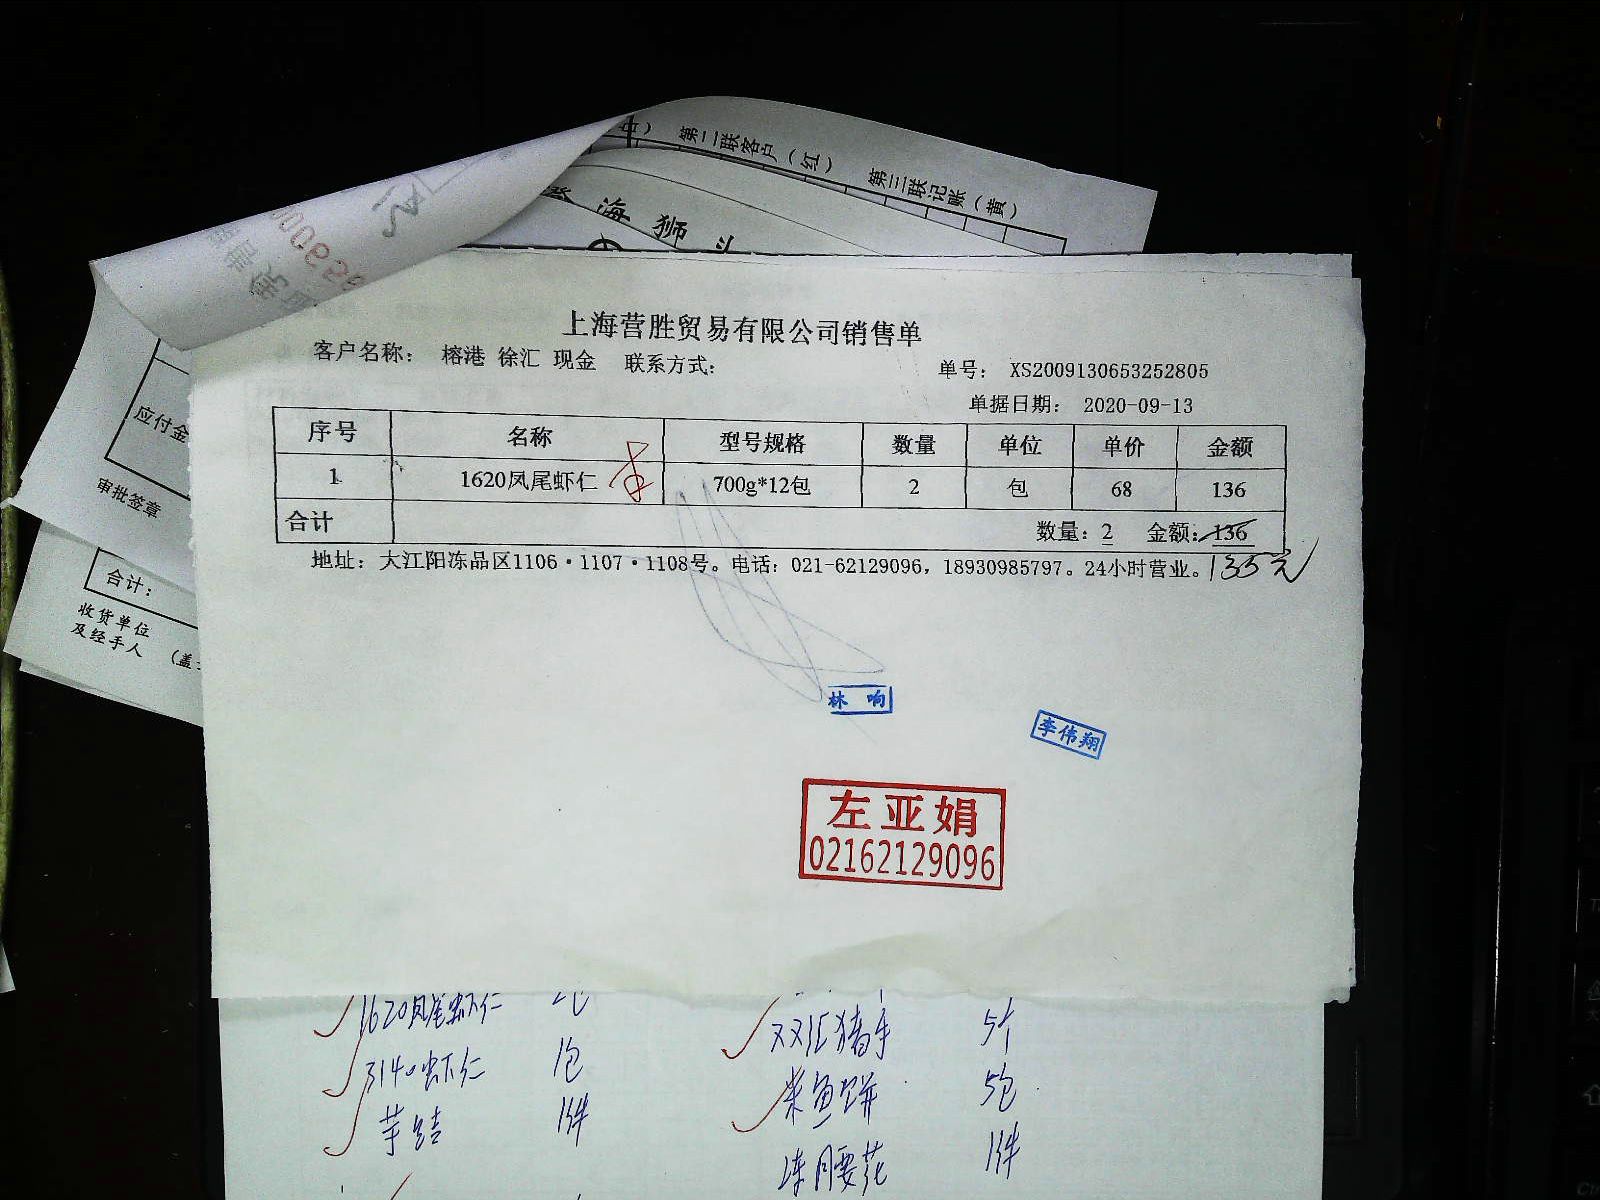 第二联客户（红） 第三联记账（黄）
海狮
应付金
审批签章
合计：
收货单位
及经手人
（盖
上海营胜贸易有限公司销售单
客户名称： 榕港 徐汇 现金 联系方式： 单号： XS2009130653252805
单据日期： 2020-09-13
序号 名称 型号规格 数量 单位 单价 金额
1 1620凤尾虾仁 700g*12包 2 包 68 136
合计 数量：2 金额：136
地址：大江阳冻品区1106·1107·1108号。电话：021-62129096，18930985797。24小时营业。135元
林响
李伟翔
左亚娟
02162129096
1620凤尾虾仁 双汇猪手 5个
3140虾仁 1包 米鱼饼 5包
芋结 1件 冻腰花 1件